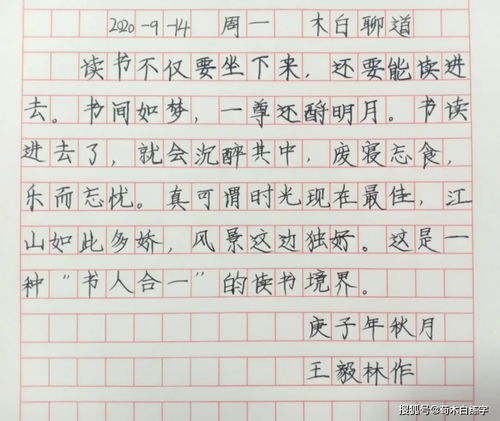 2020-9-14 周一 木白聊道
读书不仅要坐下来，还要能读进
去。书间如梦，一尊还酹明月。书读
进去了，就会沉醉其中，废寝忘食，
乐而忘忧。真可谓时光现在最佳，江
山如此多娇，风景这边独好。这是一
种“书人合一”的读书境界。
庚子年秋月
王毅林作
搜狐号@苟木白练字